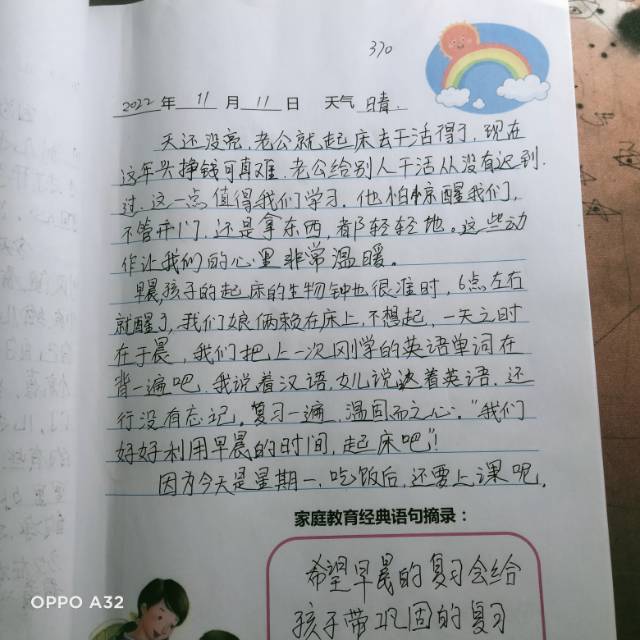 370
2022 年 11 月 11 日 天气 晴.
天还没亮,老公就起床去干活得了,现在
这年兴挣钱可真难,老公给别人干活从没有迟到.
过.这一点值得我们学习.他怕惊醒我们,
不管开门,还是拿东西,都轻轻地。这些动
作让我们的心里非常温暖。
早晨,孩子的起床的生物钟也很准时,6点左右
就醒了,我们娘俩赖在床上,不想起,一天之时
在于晨,我们把上一次刚学的英语单词在
背一遍吧.我说着汉语,女儿说着英语.还
行没有忘记.复习一遍,温固而之心."我们
好好利用早晨的时间,起床吧"!
因为今天是星期一,吃饭后,还要上课呢.
家庭教育经典语句摘录:
希望早晨的复习会给
孩子带巩固的复习
OPPO A32